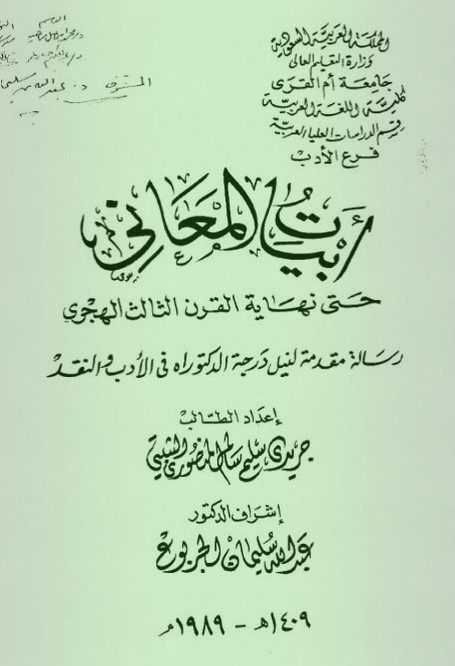 المملكة العربية السعودية
وزارة التعليم العالي
جامعة أم القرى
كلية اللغة العربية
قسم الدراسات العليا العربية
فرع الأدب
المشرف د. عبد الله بن سليمان
أبيات المعاني
حتى نهاية القرن الثالث الهجري
رسالة مقدمة لنيل درجة الدكتوراه في الأدب والنقد
إعداد الطالب
جريدي سليم سالم المنصوري الثبيتي
إشراف الدكتور
عبد الله سليمان الجربوع
١٤٠٩هـ - ١٩٨٩م